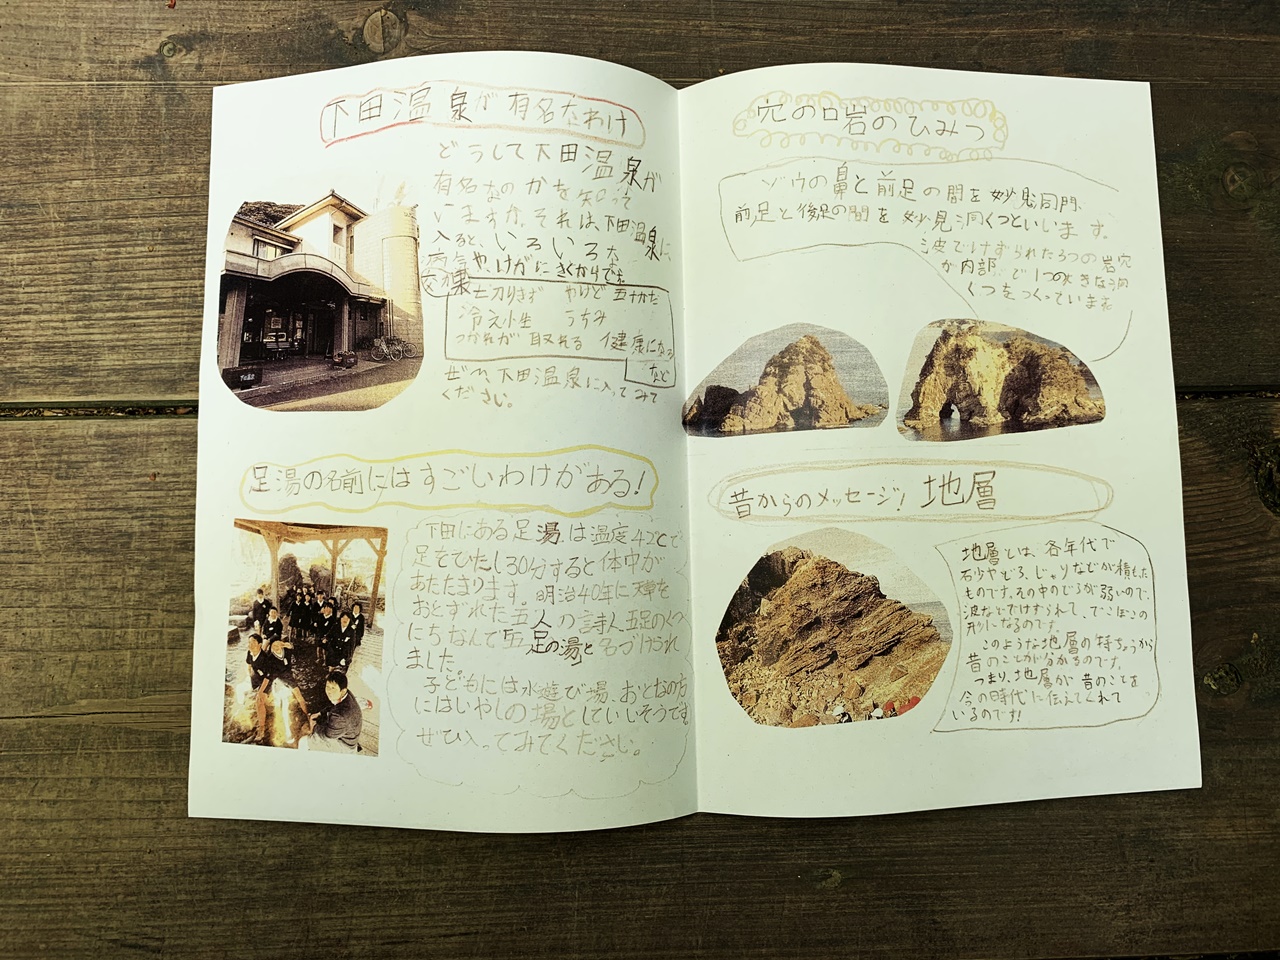 下田温泉が有名なわけ
どうして下田温泉が
有名なのかを知って
いますか。それは、下田温泉に
入ると、いろいろな
病気や、けがにきくからです。
効果 切りきず やけど 五十かた
冷え小生 うちみ
つかれが取れる 健康になる
など
ぜひ、下田温泉に入ってみて
ください。
足湯の名前にはすごいわけがある!
下田にある足湯は温度42℃で
足をひたし30分すると体中が
あたたまります。明治40年に天草を
おとずれた五人の詩人五足のくつ
にちなんで五足の湯と名づけられ
ました。
子どもには水遊び場、おとなの方
にはいやしの場としていいそうです。
ぜひ入ってみてください。
穴の口岩のひみつ
ゾウの鼻と前足の間を妙見洞門、
前足と後足の間を妙見洞くつといいます。
波でけずられた3つの岩穴
が内部で1つの大きな洞
くつをつくっています
昔からのメッセージ! 地層
地層とは、各年代で
石少やどろ、じゃりなどが積もった
ものです。その中のどろが弱いので、
波などでけずられて、でこぼこの
形になるのです。
このような地層の特ちょうから
昔のことが分かるのです。
つまり、地層が昔のことを
今の時代に伝えてくれて
いるのです!